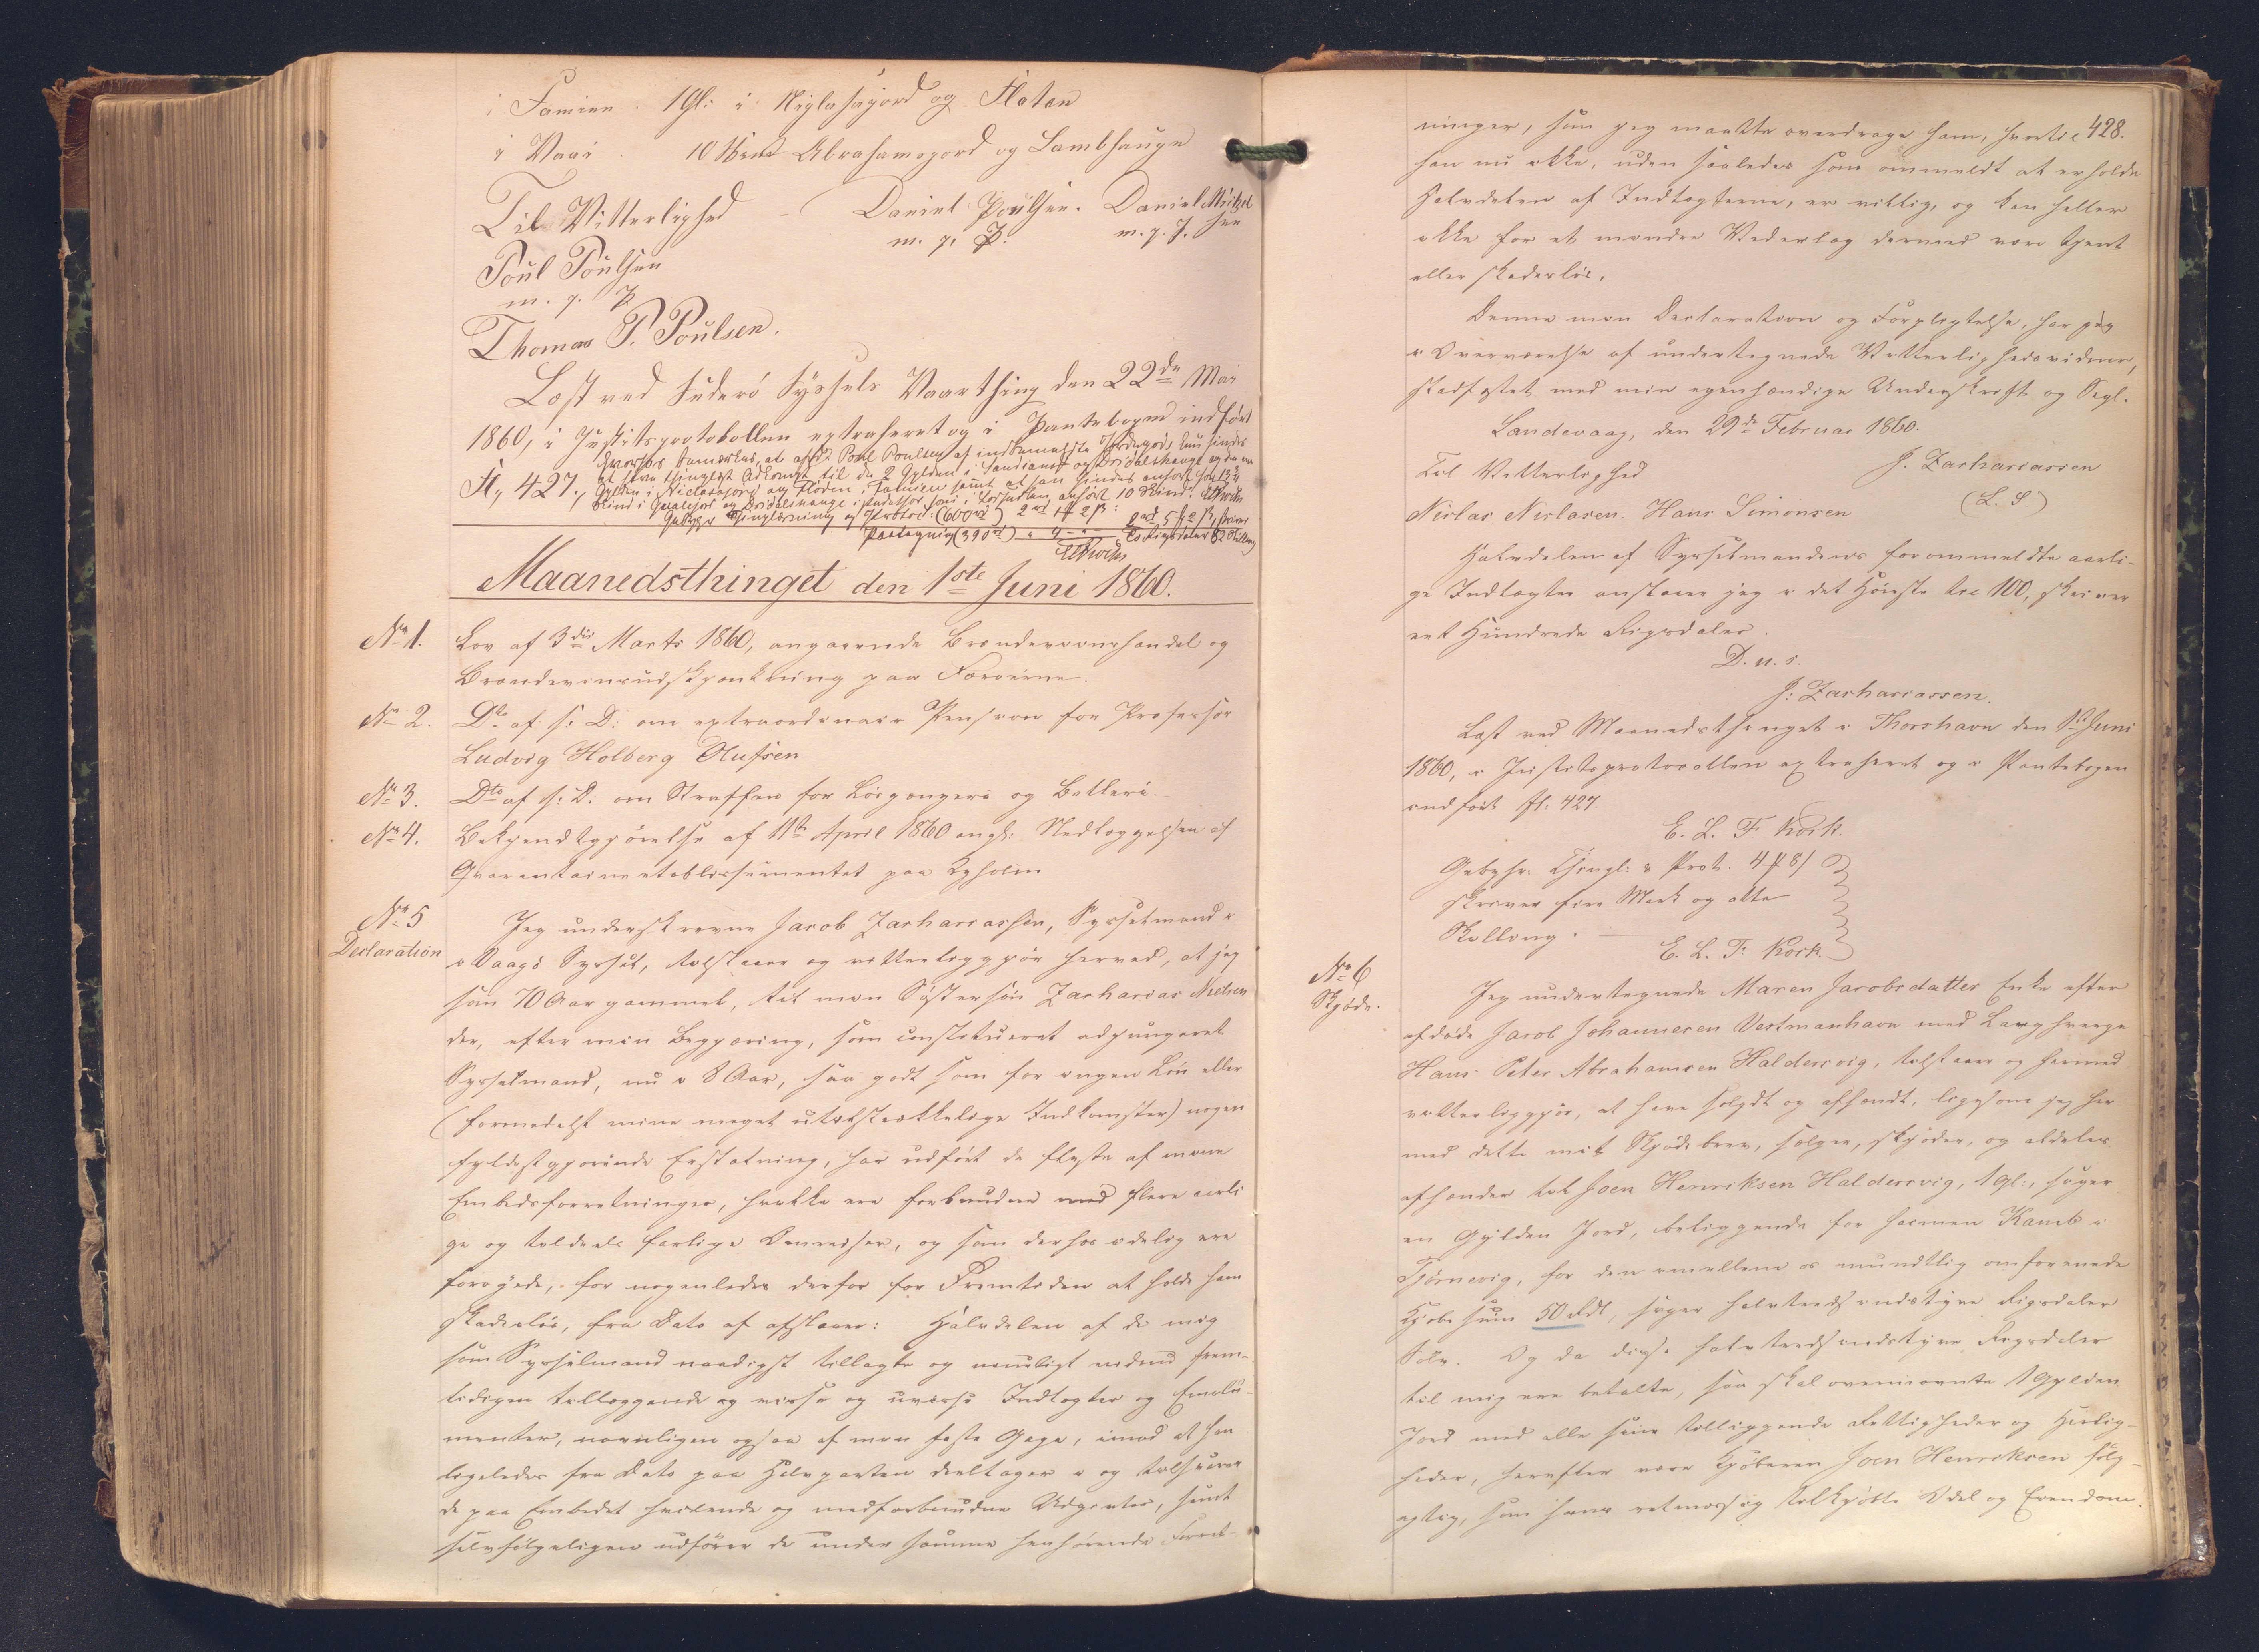 i Famien. 1 Gl: i Niglasajord og Flatan
i Vaai 10 Skind Abrahamsgord og Lambhauge
Til Vitterlighed - Daniel Poulsen. Daniel Michel
m. p. P. m. p. P. sen
Poul Poulsen
m. p. P.
Thomas P. Poulsen.
Læst ved Suderö Syssels Vaarthing den 22de Mai
1860, i Justitsprotokollen extraheret og i Pantebogen indført
Fl, 427.
Maanedsthinget den 1ste Juni 1860.
No 1. Lov af 3die Marts 1860, angaaende Brændeviinshandel og
Brændeviinsudskjænkning paa Færøerne.
No 2. Do af s: D: om extraordinair Pension for Professor
Ludvig Holberg Olufsen
No 3. Dto af s: D. om Straffen for Løsgængeri og Betleri.
No 4. Bekjendtgjørelse af 11te April 1860 angl: Nedlæggelsen af
Qvarantaineetablissementet paa Kyholm
No 5 Jeg underskrevne Jacob Zachariassen, Sysselmand i
Declaration Vaagø Syssel, tilstaaer og vitterliggjør herved, at jeg
som 70 Aar gammel, til min Søstersøn Zacharias Nielsen
der, efter min Begjæring, som constitueret adjungeret
Sysselmand, nu i 8 Aar, saa godt som for ingen Løn eller
(formedelst mine meget utilstrækkelige Indkomster) nogen
fyldestgjørende Erstatning, har udført de fleste af mine
Embedsforretninger, hvilke ere forbundne med flere aarli
ge og tildeels farlige Omreiser, og som derhos idelig ere
forøgede, for nogenledes derfor for Fremtiden at holde ham
skadesløs, fra Dato af afstaaer: Halvdelen af de mig
som Sysselmand naadigst tillagte og muligt endnu frem-
tidigen tillæggende og visse og uvisse Indtægter og Emolu-
menter, navnligen ogsaa af min faste Gage, imod at han
ligeledes fra Dato paa Halvparten deeltager i og tilsvarer
de paa Embedet hvilende og medforbundne Udgivter, samt
selvfølgeligen udfører de under samme henhørende Forret-
428.
ninger, som jeg maatte overdrage ham, hvortil
han nu ikke, uden saaledes som ommeldt at erholde
Halvdelen af Indtægterne, er villig, og kan heller
ikke for et mindre Vederlag dermed være tjent
eller skadesløs.
Denne min Declaration og Forpligtelse, har jeg
i Overværelse af undertegnede Vitterlighedsvidner,
stadfæstet med min egenhændige Underskrift og Segl.
Sandevaag, den 29de Februar 1860.
Til Vitterlighed J. Zachariasen
Niclas Niclasen. Hans Simonsen (L. S)
Halvdelen af Sysselmandens forommeldte aarli-
ge Indtægter anslaaer jeg i det Høieste til 100, skriver
eet Hundrede Rigsdaler.
D. u. s.
J: Zachariassen.
Læst ved Maanedsthinget i Thorshavn den 1ste Juni
1860, i Justitsprotocollen extraheret og i Pantebogen
indført fl: 427.
E. L. F. Kock.
Gebyhr: Thingl: & Prot. 4 # 8 /
skriver fire Mark og otte
Skilling. E. L. F: Kock.
No 6 Jeg undertegnede Maren Jacobsdatter Enke efter
Skjøde. afdøde Jacob Johannesen Vestmanhavn med Laugværge
Hans Peter Abrahamsen Haldersvig, tilstaaer og hermed
vitterliggjør, at have solgdt og afhændt, ligesom jeg her
med dette mit Skjødebrev, sælger, skjøder, og aldeles
afhænder til Joen Henriksen Haldersvig, 1 Gl:, siger
en Gylden Jord, beliggende for heimen Kamb i
Tjørnevig, for den imellem os mundtlig omforenede
Kjøbesum 50 Rdl, siger halvtredsindstyve Rigsdaler
Sølv. Og da disse halvtredsindstyve Rigsdaler
til mig ere betalte, saa skal ovennævnte 1 Gylden
Jord med alle sine tilliggende Rettigheder og Herlig-
heder, herefter være Kjøberen Joen Henriksen følg-
agtig, som hans retmæssig tilkjøbte Odel og Eiendom.